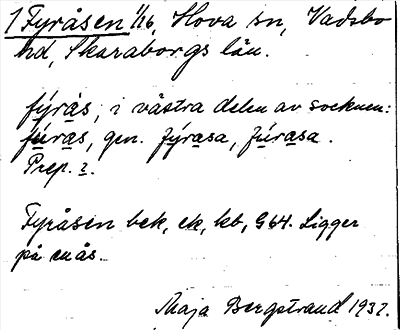 1 Fyråsen 1/16, Hova sn, Vadsbo
hd, Skaraborgs län.
fýrås, i västra delen av socknen:
fúras, gen. fýrasa, fúrasa.
Prep. ?.
Fyråsen bek, ek, kb, G 64. Ligger
på en ås.
Maja Bergstrand 1937.